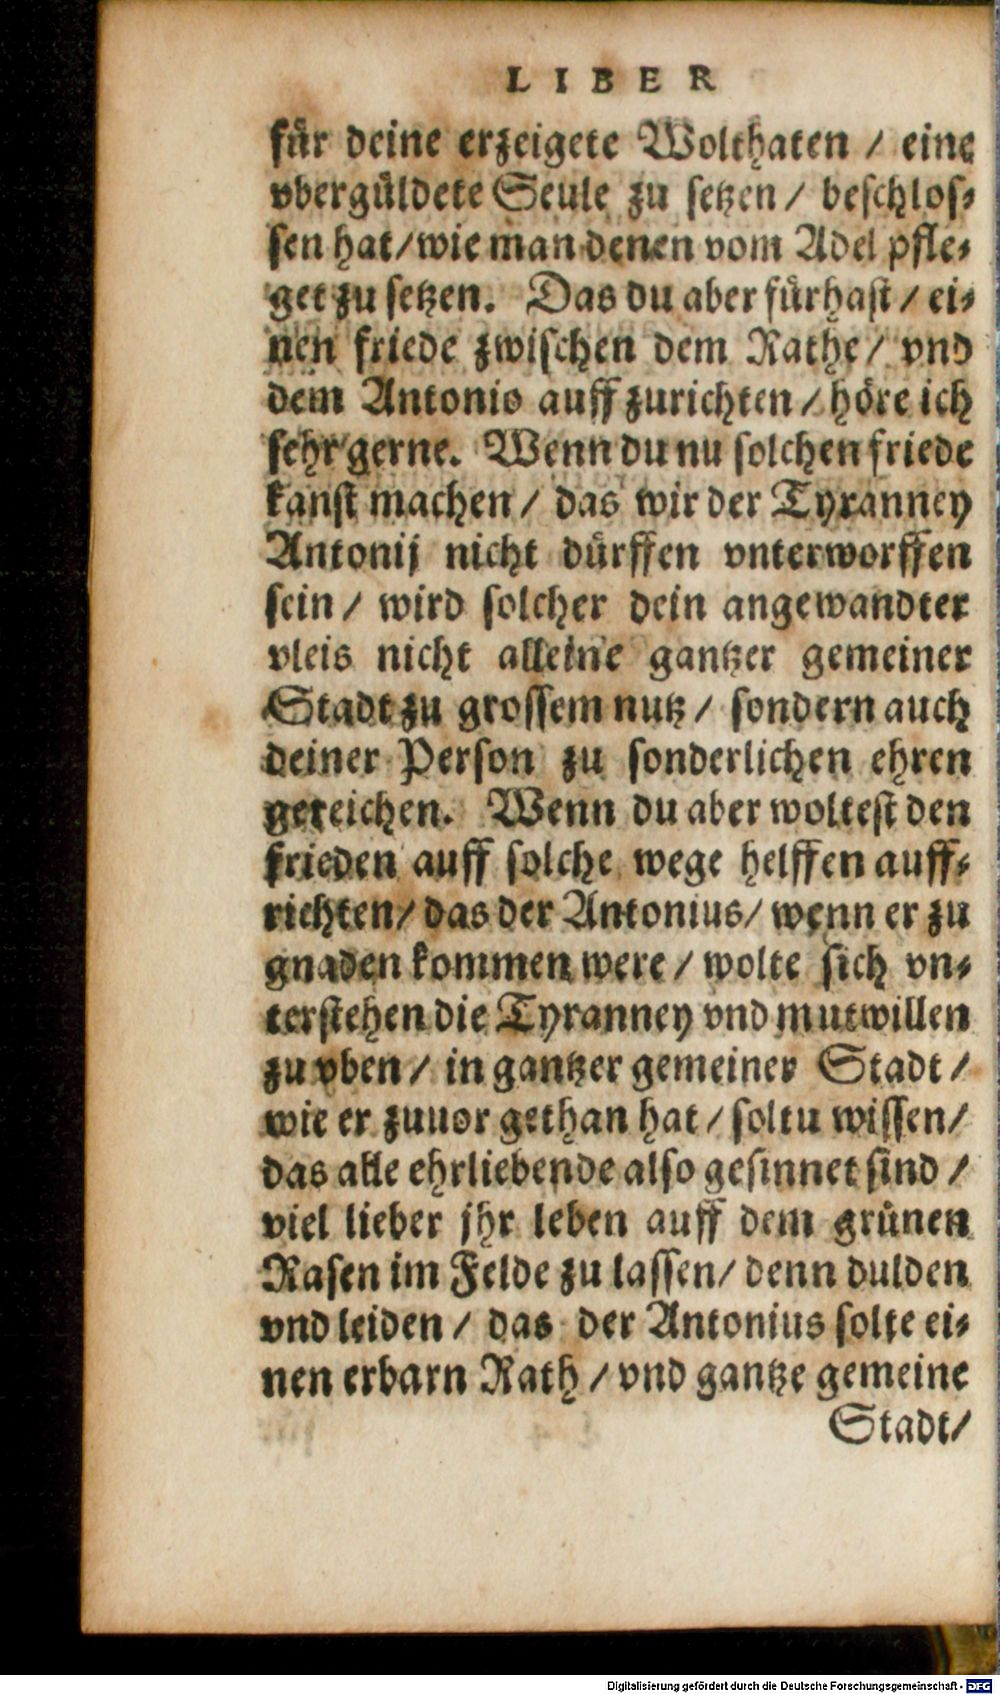 LIBER
für deine erzeigete Wolthaten / eine
vbergüldete Seule zu setzen / beschlos⸗
sen hat / wie man denen vom Adel pfle⸗
get zu setzen. Das du aber fürhast / ei⸗
nen friede zwischen dem Rathe / vnd
dem Antonio auff zurichten / höre ich
sehr gerne. Wenn du nu solchen friede
kanst machen / das wir der Tyranney
Antonij nicht dürffen vnterworffen
sein / wird solcher dein angewandter
vleis nicht alleine gantzer gemeiner
Stadt zu grossem nutz / sondern auch
deiner Person zu sonderlichen ehren
gereichen. Wenn du aber woltest den
frieden auff solche wege helffen auff⸗
richten / das der Antonius / wenn er zu
gnaden kommen were / wolte sich vn⸗
terstehen die Tyranney vnd mutwillen
zu vben / in gantzer gemeiner Stadt /
wie er zuuor gethan hat / soltu wissen /
das alle ehrliebende also gesinnet sind /
viel lieber jhr leben auff dem grünen
Rasen im Felde zu lassen / denn dulden
vnd leiden / das der Antonius solte ei⸗
nen erbarn Rath / vnd gantze gemeine
Stadt /
Digitalisierung gefördert durch die Deutsche Forschungsgemeinschaft - DFG